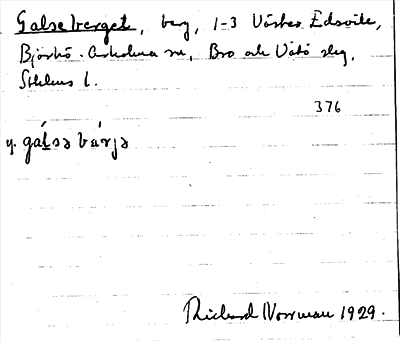 Galseberget, berg, 1-3 Väster Edsvik,
Björkö-Arholma sn, Bro och Vätö slg,
Sthlms l.
376
y. gálsə bárjə
Richard Norrman 1929.